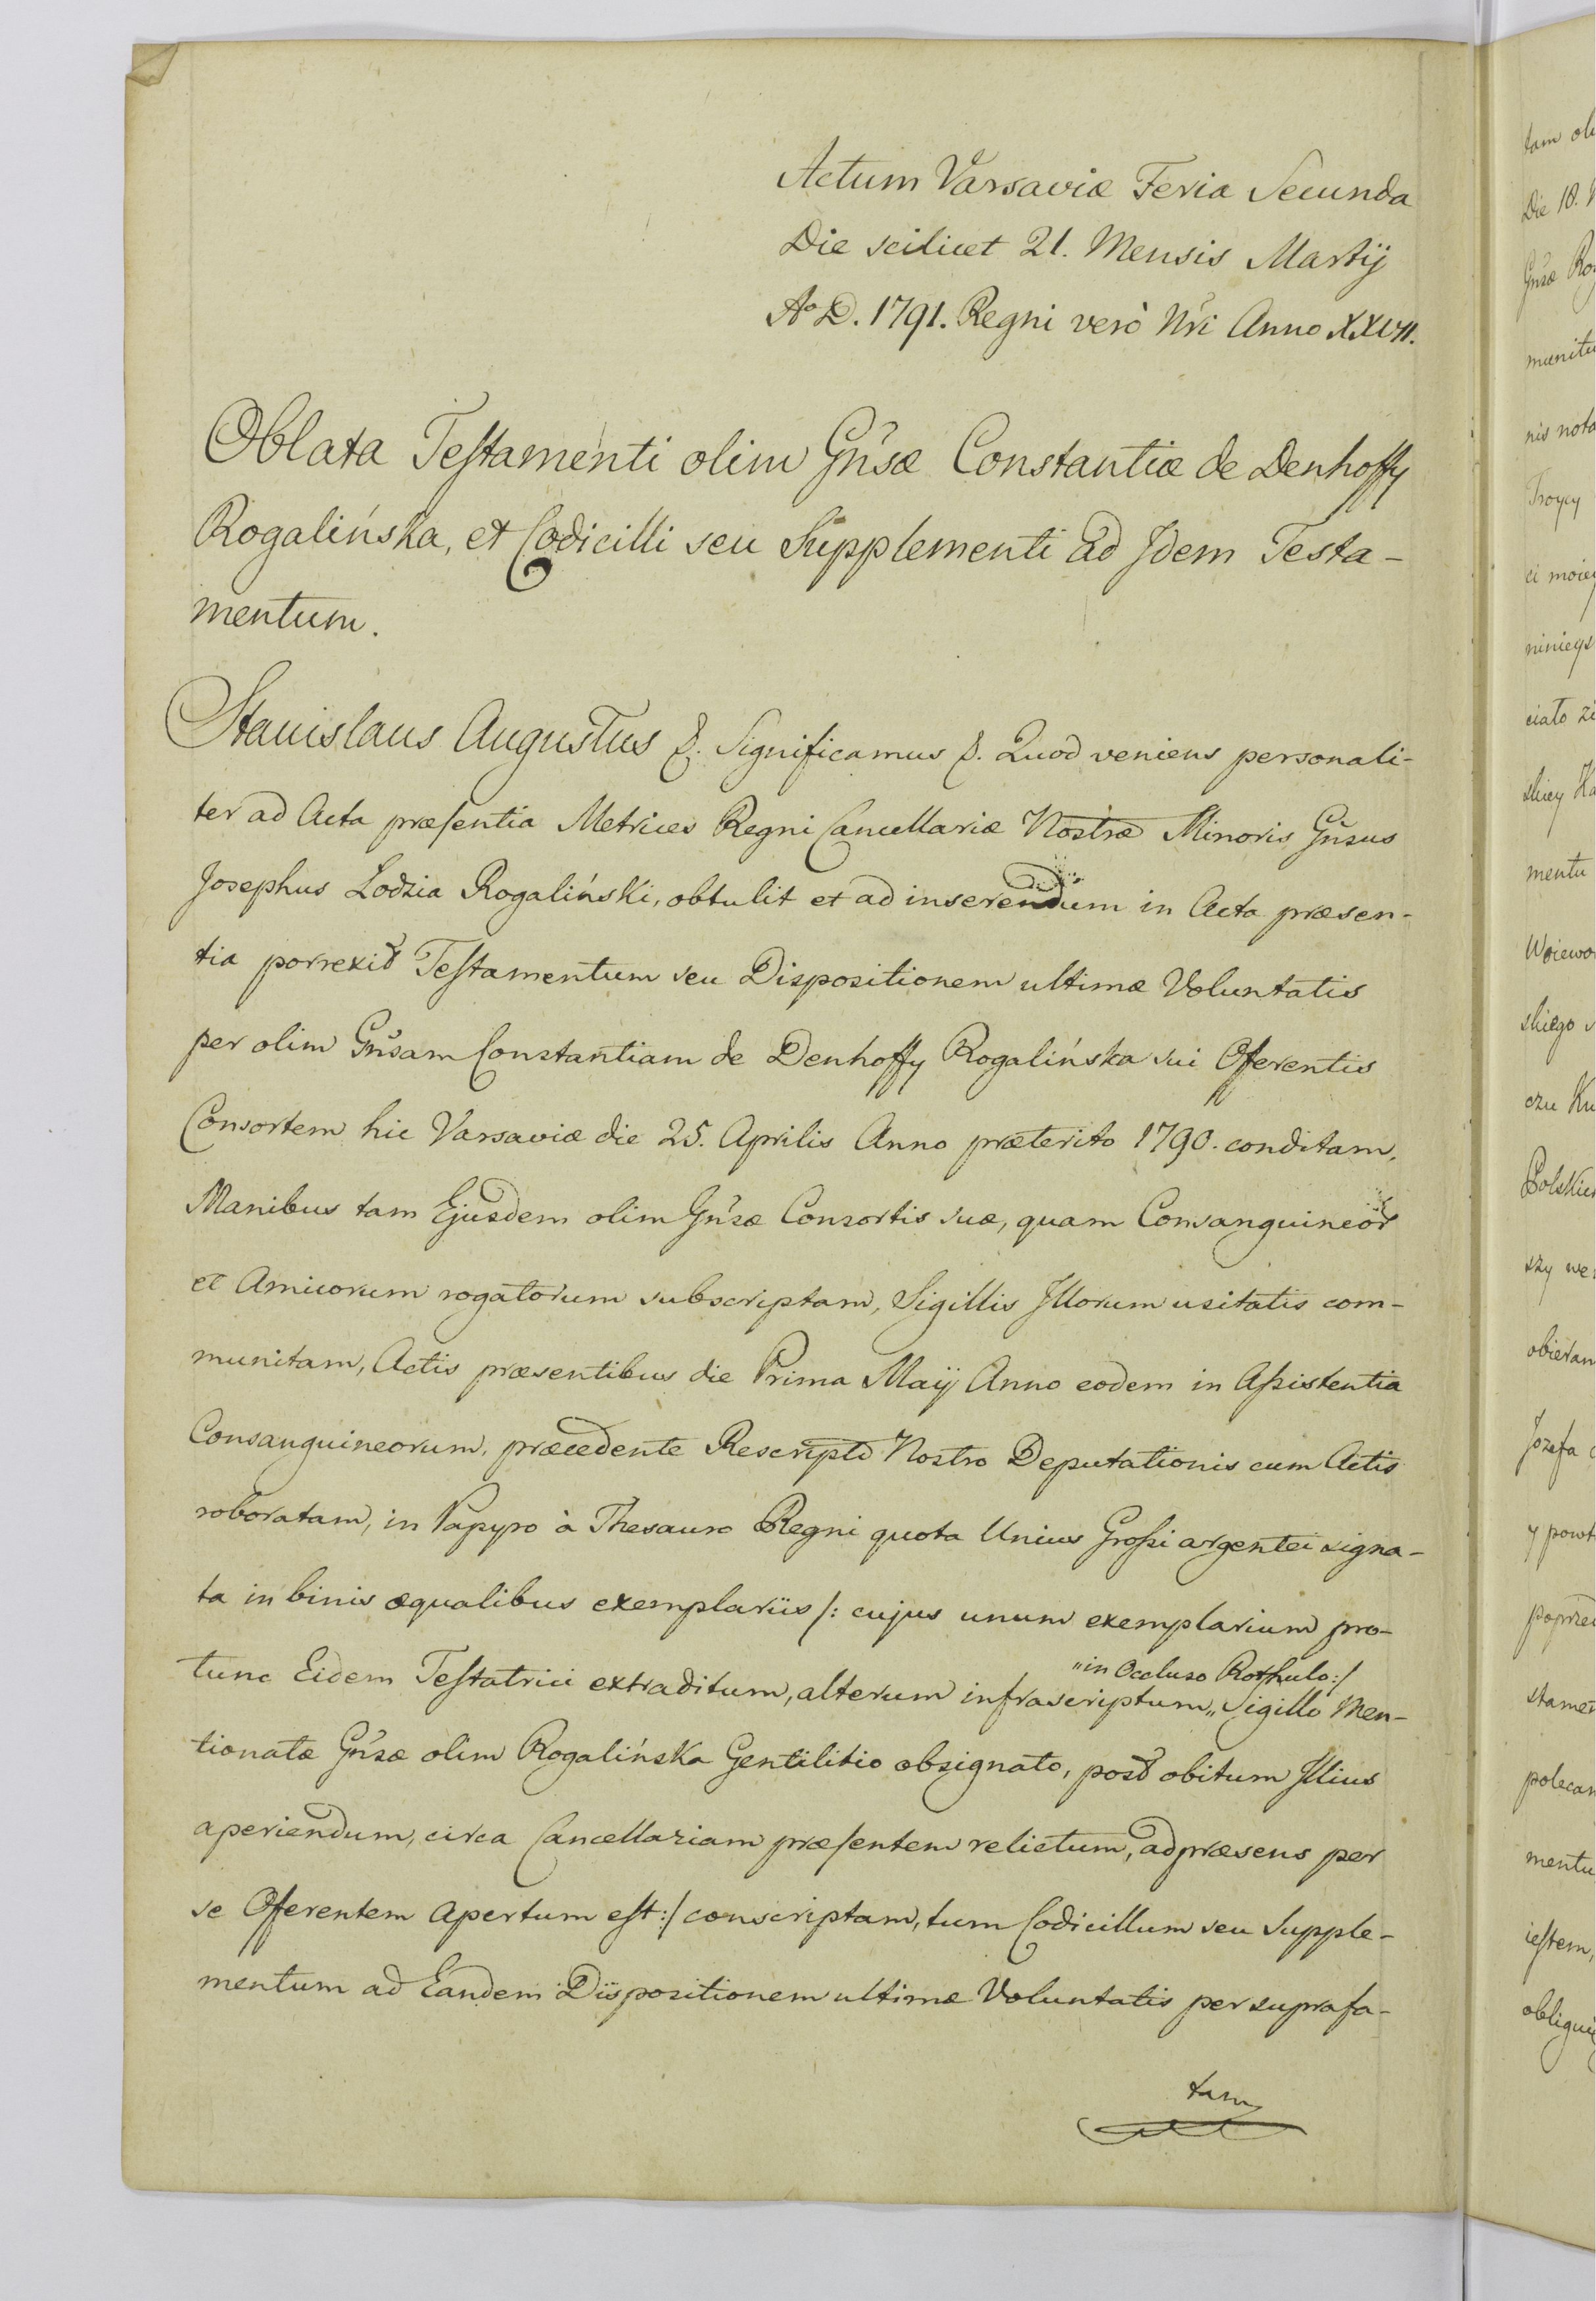 Actum Varsaviæ Feria Secunda
Die scilicet 21. Mensis Martij
Aº D. 1791. Regni verò Nri Anno XXVII.
Oblata Teſtamenti olim Gnsæ Constantiæ de Denhoffy
Rogalińska, et Codicilli seu Supplementi ad Jdem Testa-
mentum.
Stanislaus Augustus &. Significamus &. Quod veniens personali-
ter ad Acta præſentia Metrices Regni Cancellariæ Nostræ Minoris Gnsus
Josephus Lodzia Rogaliński, obtulit et ad inserendum in Acta præsen-
tia porrexit Teſtamentum seu Dispositionem ultimæ Voluntatis
per olim Gnsam Constantiam de Denhoffy Rogalińska sui Offerentis
Consortem hic Varsaviæ die 25. Aprilis Anno præterito 1790. conditam,
Manibus tam Ejusdem olim Gnsæ Consortis suæ, quam Consanguineor
et Amicorum rogatorum subscriptam, Sigillis Jllorum usitatis com-
munitam, Actis præsentibus die Prima Maij Anno eodem in Aſsistentia
Consanguineorum, præcedente Rescripto Nostro Deputationis cum Actis
roboratam, in Papyro à Thesauro Regni quota Unius Groſsi argentei signa-
ta in binis æqualibus exemplariis /: cujus unum exemplarium pro-
tunc Eidem Teſtatrici extraditum, alterum infrascriptum „ Sigillo Men-
„in Occluso Rothulo :/
tionatæ Gnsæ olim Rogalińska Gentilitio obsignato, post obitum Jllius
aperiendum, circa Cancellariam præſentem relictum, ad præsens per
se Offerentem apertum eſt :/ conscriptam, tum Codicillum seu Supple-
mentum ad Eandem Dispositionem ultimæ Voluntatis per suprafa-
tam
tam
Die 18.
Gnsæ
nis
Troycy
ci
mentu
Jozefa
y
polecam
mentu
ieſtem,